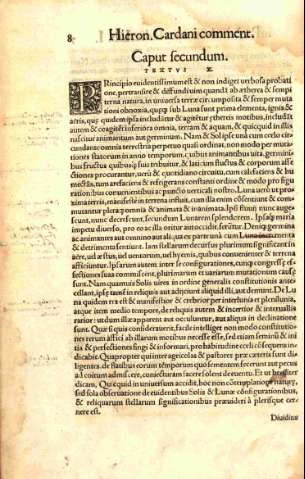 8 Hieron. Cardani comment.
Caput secundum.
TEXTVS X.
PRincipio euidentissimum est & non indiget verbosa probati
one, pertransire & diffundi uim quandã ab ætherea & sempi
terna natura, in uniuersa terræ circumposita & semper muta
tioni obnoxia, quoq; sub Luna sunt prima elementa, ignis &
aër, quę quidem ipsa includũtur & agitãtur ætheris motibus, includũt
autem & coagitãt inferiora omnia, terram & aquam, & quicquid in illis
nascitur animantium aut germinum. Nam & Sol ipse unà cum cœlo cir
cundans omnia terrestria perpetuo quasi ordinat, non modo per muta
tiones statorum in anno temporum, quibus animantibus uita, germini-
bus fructus quibusq; suis tribuitur, & laticum fluctus & corporum affe
ctiones procurantur, uerũ & quotidiano circuitu, cum calefaciens & hu
mectãs, tum arefaciens & refrigerans constanti ordine & modo pro figu
rationibus conuenientibus à puncto uerticali nostro. Luna uerò ut proxi
ma terris, manifeste in terrena instillat, cum illa enim cõsentiunt & com-
mutantur pleraq; omnia & animata & inanimata. Ipsi fluuij nunc auges
cunt, nunc decrescunt, secundum Lunarem splendorem. Ipsaq; maria
impetu diuerso, pro eo ac illa oritur aut occidit, feruntur. Deniq; germina
ac animantes aut omni modo, aut ex parte unà cum Luna incrementa
& detrimenta sentiunt. Iam stellarum decursus plurimum significant in
aëre, uel æstus, uel uentorum, uel hyemis, quibus conuenienter & terrena
afficiuntur. Ipsarum autem inter se configurationes, cum congressus ef-
fectiones suas commiscent, plurimarum et uariarum mutationum causę
sunt. Nam quamuis Solis uires in ordine generalis constitutionis ante-
cellant, ipsę tamẽ in reliquis aut adijciunt aliquid illi, aut demunt. De Lu
na quidem res est & manifestior & crebrior per interlunia et plenilunia,
atque item medio tempore, de reliquis autem & incertior & interuallis
rarior: ut dum illæ apparent aut occultantur, aut aliquò in declinatione
sunt. Quæ si quis consideraverit, facile intelliget non modo constitutio-
nes rerum affici ab illarum motibus necesse esse, sed etiam seminũ & ini
tia & perfectiones fingi & informari, probabitudine cœli consequens in
dicabit. Quapropter qui inter agricolas & pastores præ cæteris sunt di
ligentes, de flatibus eorum temporum quo sementem fecerunt aut pecus
ad coitum admisere, coniecturam facere solent de euentu. Et ut breuiter
dicam, Quæ quid in uniuersum accidit, hoc non cõtemplatione naturę,
sed sola obseruatione de euidentibus Solis & Lunæ cõfigurationibus,
& reliquarum stellarum significationibus præuideri à plerisque cer-
nere est.
Diuiditur